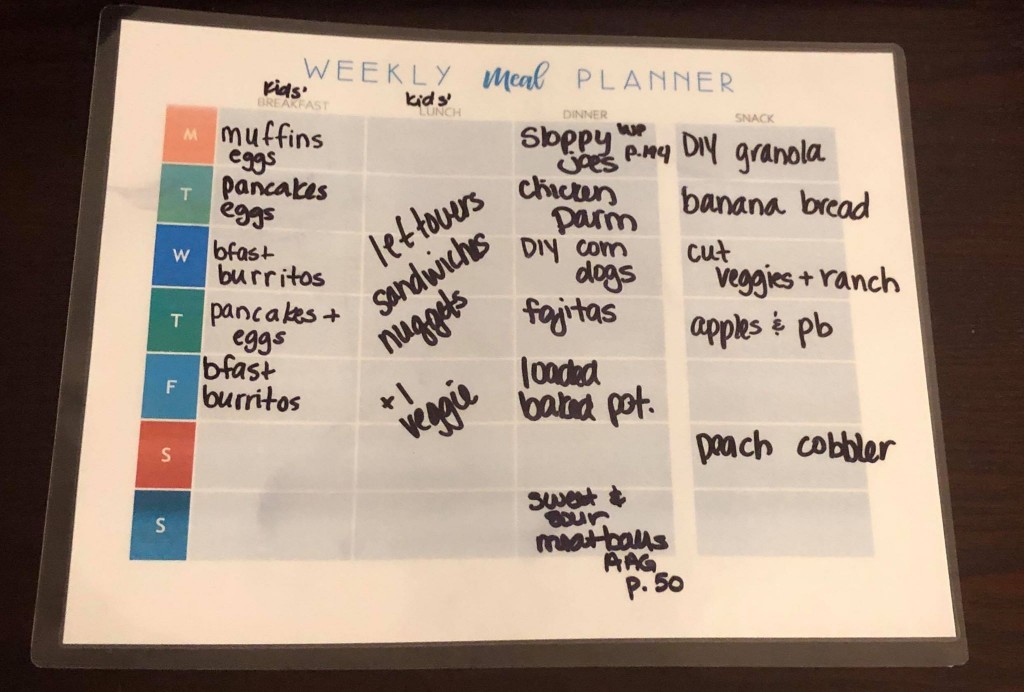 WEEKLY meal PLANNER
Kids' Kids'
BREAKFAST LUNCH DINNER SNACK
M muffins eggs Sloppy Joes WP p.194 DIY granola
T pancakes eggs chicken parm banana bread
W bfast burritos DIY corn dogs cut veggies + ranch
leftovers
sandwiches
nuggets
+1
veggie
T pancakes + eggs fajitas apples & pb
F bfast burritos loaded baked pot.
S peach cobbler
S sweet & sour meatballs AAG p. 50